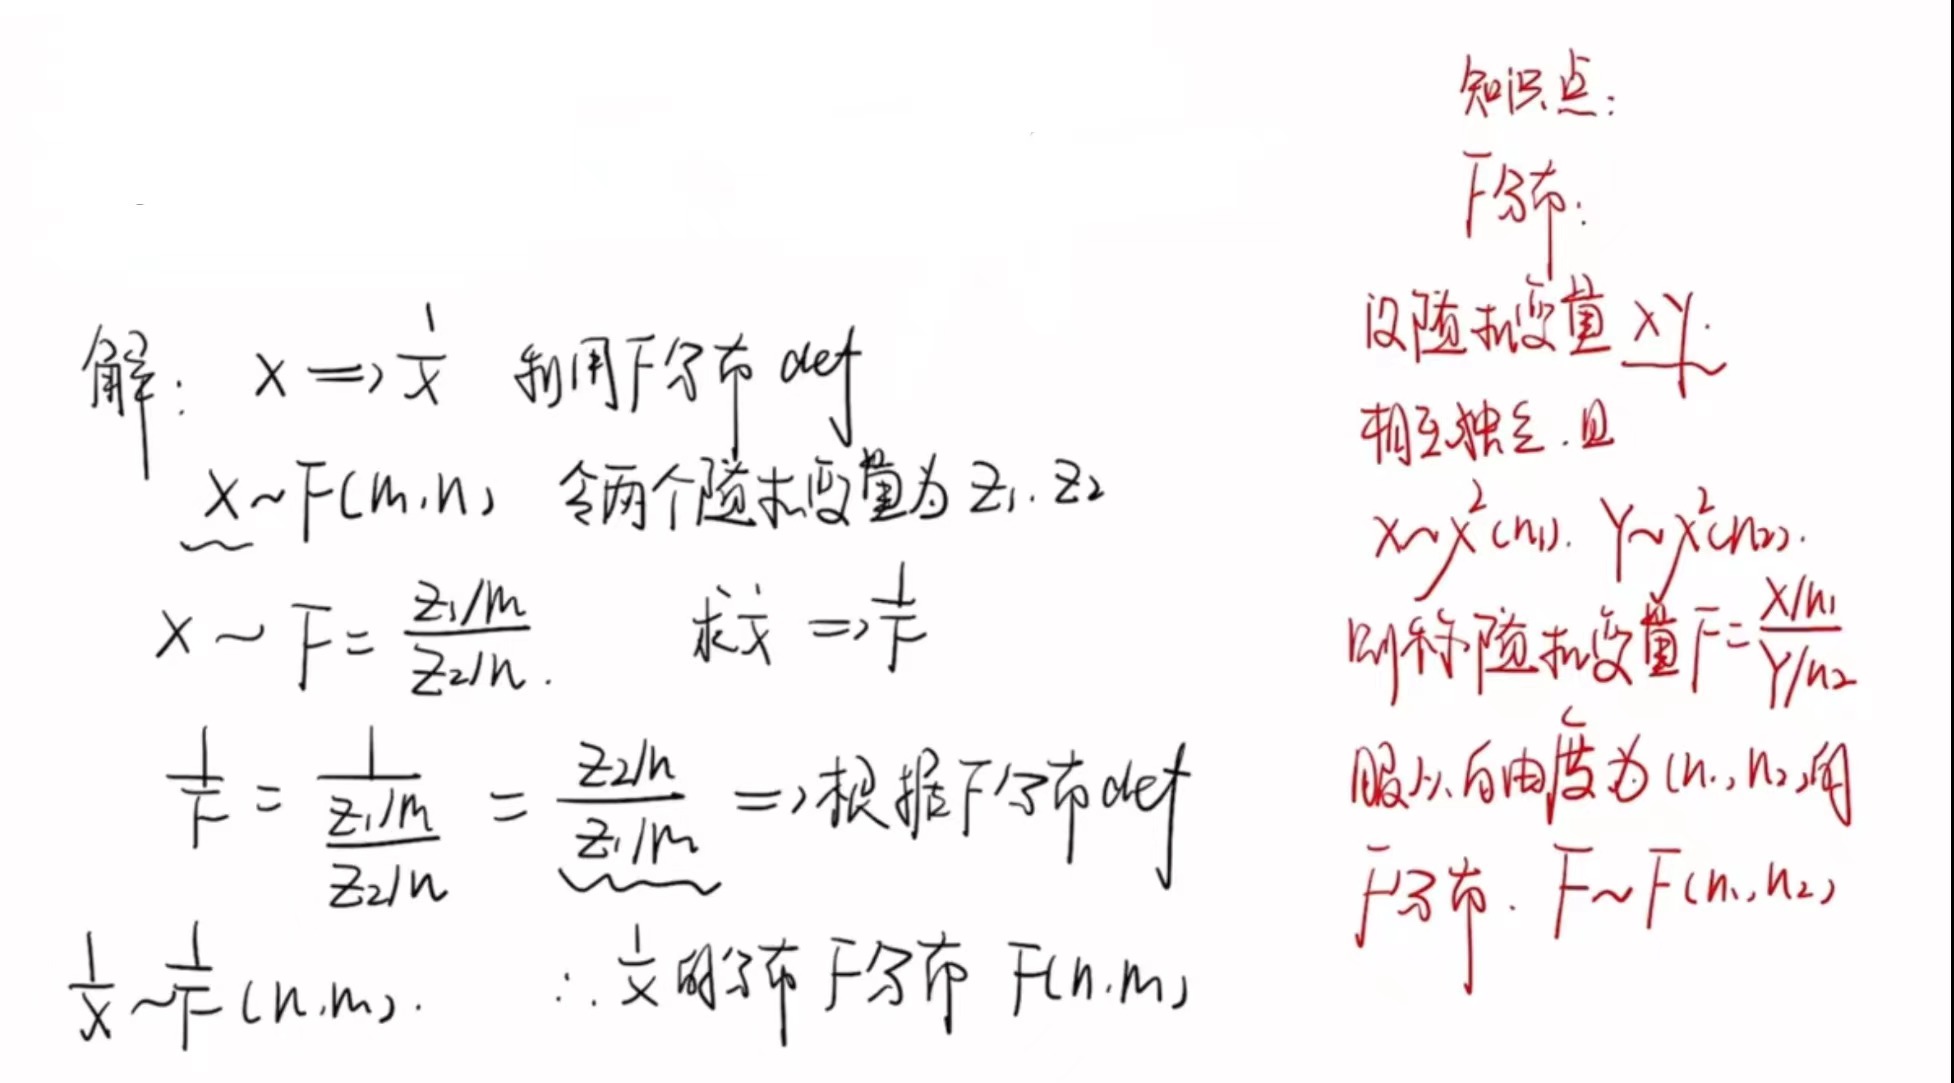 解: X => 1/X 利用F分布 def
X~F(m,n) 令两个随机变量为 Z₁, Z₂
X ~ F = (Z₁/m)/(Z₂/n). 求 1/X => 1/F
1/F = 1/((Z₁/m)/(Z₂/n)) = (Z₂/n)/(Z₁/m) => 根据F分布def
1/X ~ 1/F (n,m). ∴ 1/X 的分布 F分布 F(n,m)
知识点:
F分布:
设随机变量 X Y.
相互独立. 且
X~X²(n₁). Y~X²(n₂).
则称随机变量 F = (X/n₁)/(Y/n₂)
服从自由度为(n₁, n₂)的
F分布. F~F(n₁, n₂)